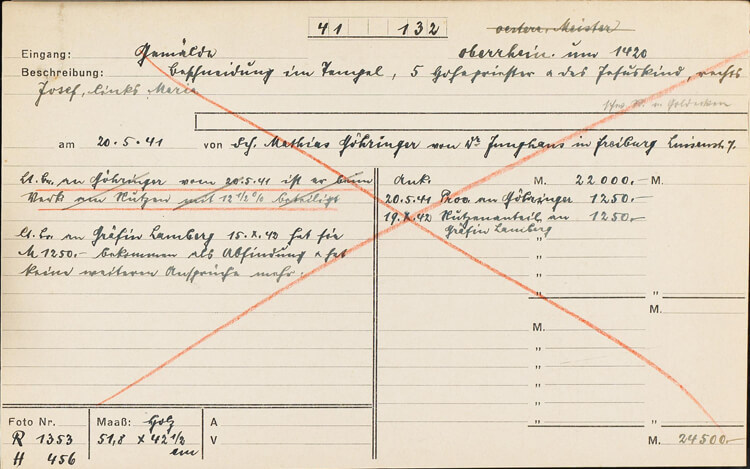 41 132 oesterr. Meister
Eingang: Gemälde oberrhein. um 1420
Beschreibung: Beschneidung im Tempel, 5 Hohepriester & das Jesuskind, rechts
Josef, links Maria
am 20.5.41 von dch. Mathias Göhringer von Dr. Junghans in Freiburg Luisenstr. 7.
Lt. Br. an Göhringer vom 20.5.41 ist er beim
Verk am Nutzen mit 12 1/2 % beteiligt
Lt. Br. an Gräfin Lamberg 15.X.42 hat sie
M 1250.- bekommen als Abfindung & hat
keine weiteren Ansprüche mehr.
Ank. M. 22000.- M.
20.5.41 Prov. an Göhringer " 1250.-
19.X.42 Nutzenanteil an " 1250.-
Gräfin Lamberg "
"
"
" "
M.
M.
"
"
"
"
" "
M. 24500.-
Foto Nr.
R 1353
H 456
Maaß: Holz
51,8 x 42 1/2
cm
A
V